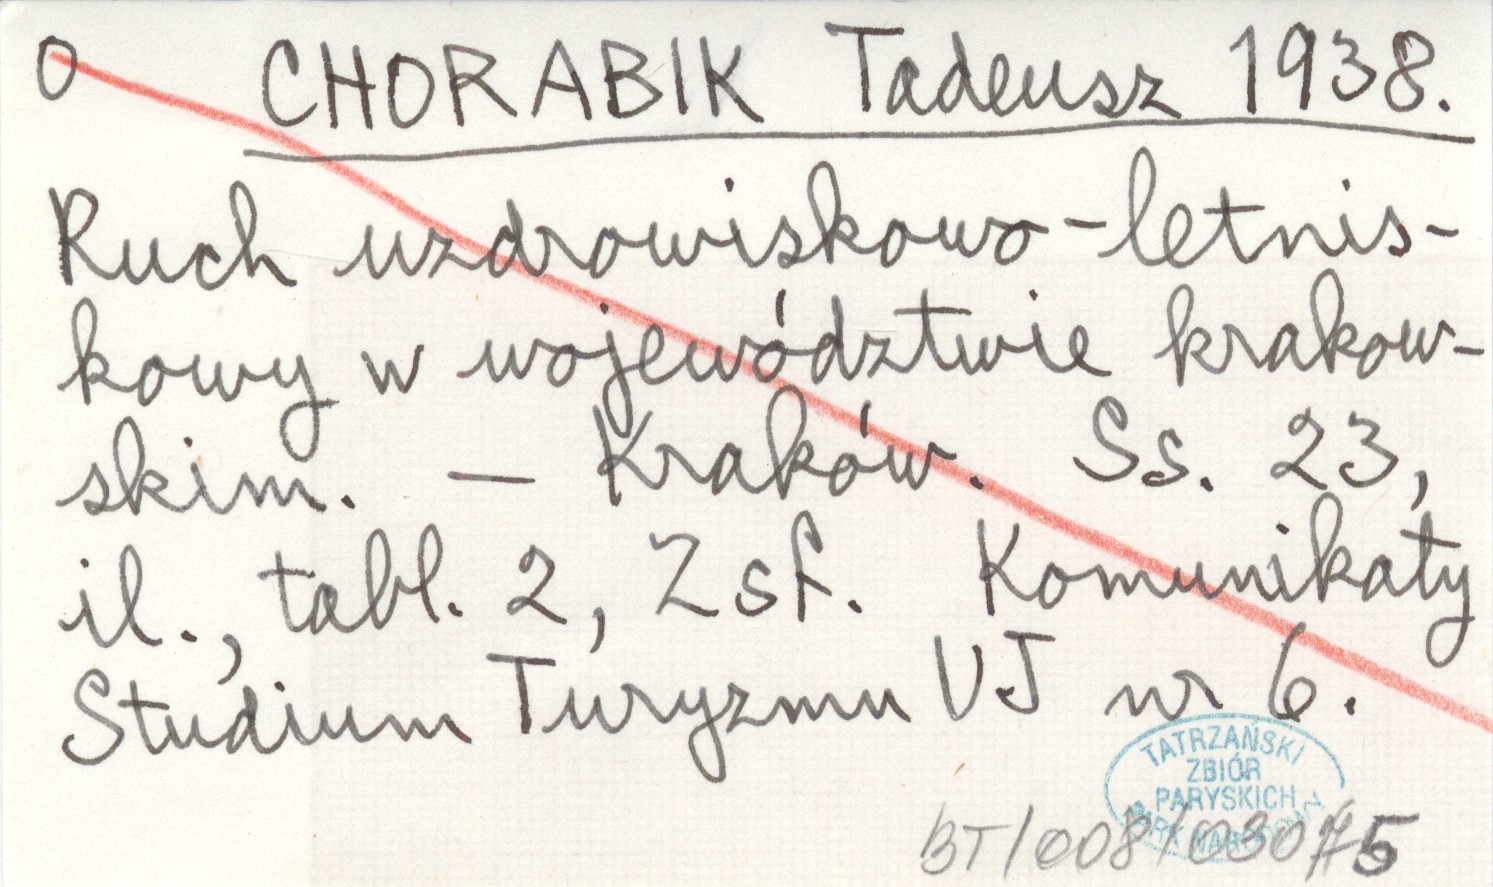 O CHORABIK Tadeusz 1938.
Ruch uzdrowiskowo-letnis-
kowy w województwie krakow-
skim. — Kraków. Ss. 23,
il., tabl. 2, Zsf. Komunikaty
Studium Turyzmu UJ nr 6.
TATRZAŃSKI
ZBIÓR
PARYSKICH
BT/008/030